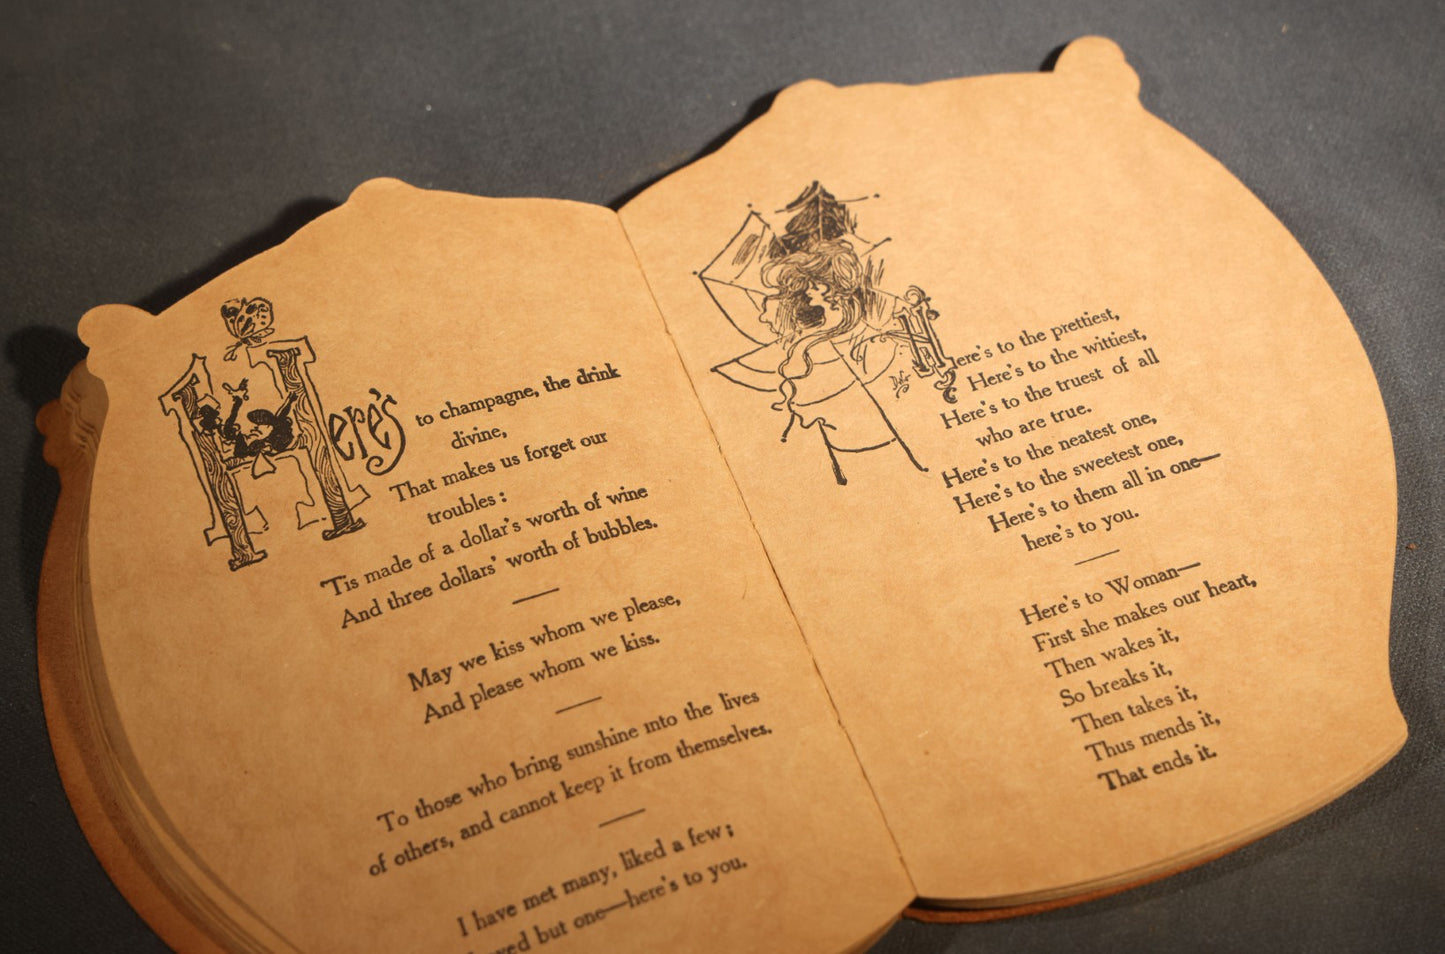 Here's to champagne, the drink
divine,
That makes us forget our
troubles :
'Tis made of a dollar's worth of wine
And three dollars' worth of bubbles.
May we kiss whom we please,
And please whom we kiss.
To those who bring sunshine into the lives
of others, and cannot keep it from themselves.
I have met many, liked a few ;
but one—here's to you.
Here's to the prettiest,
Here's to the wittiest,
Here's to the truest of all
who are true.
Here's to the neatest one,
Here's to the sweetest one,
Here's to them all in one—
here's to you.
Here's to Woman—
First she makes our heart,
Then wakes it,
So breaks it,
Then takes it,
Thus mends it,
That ends it.